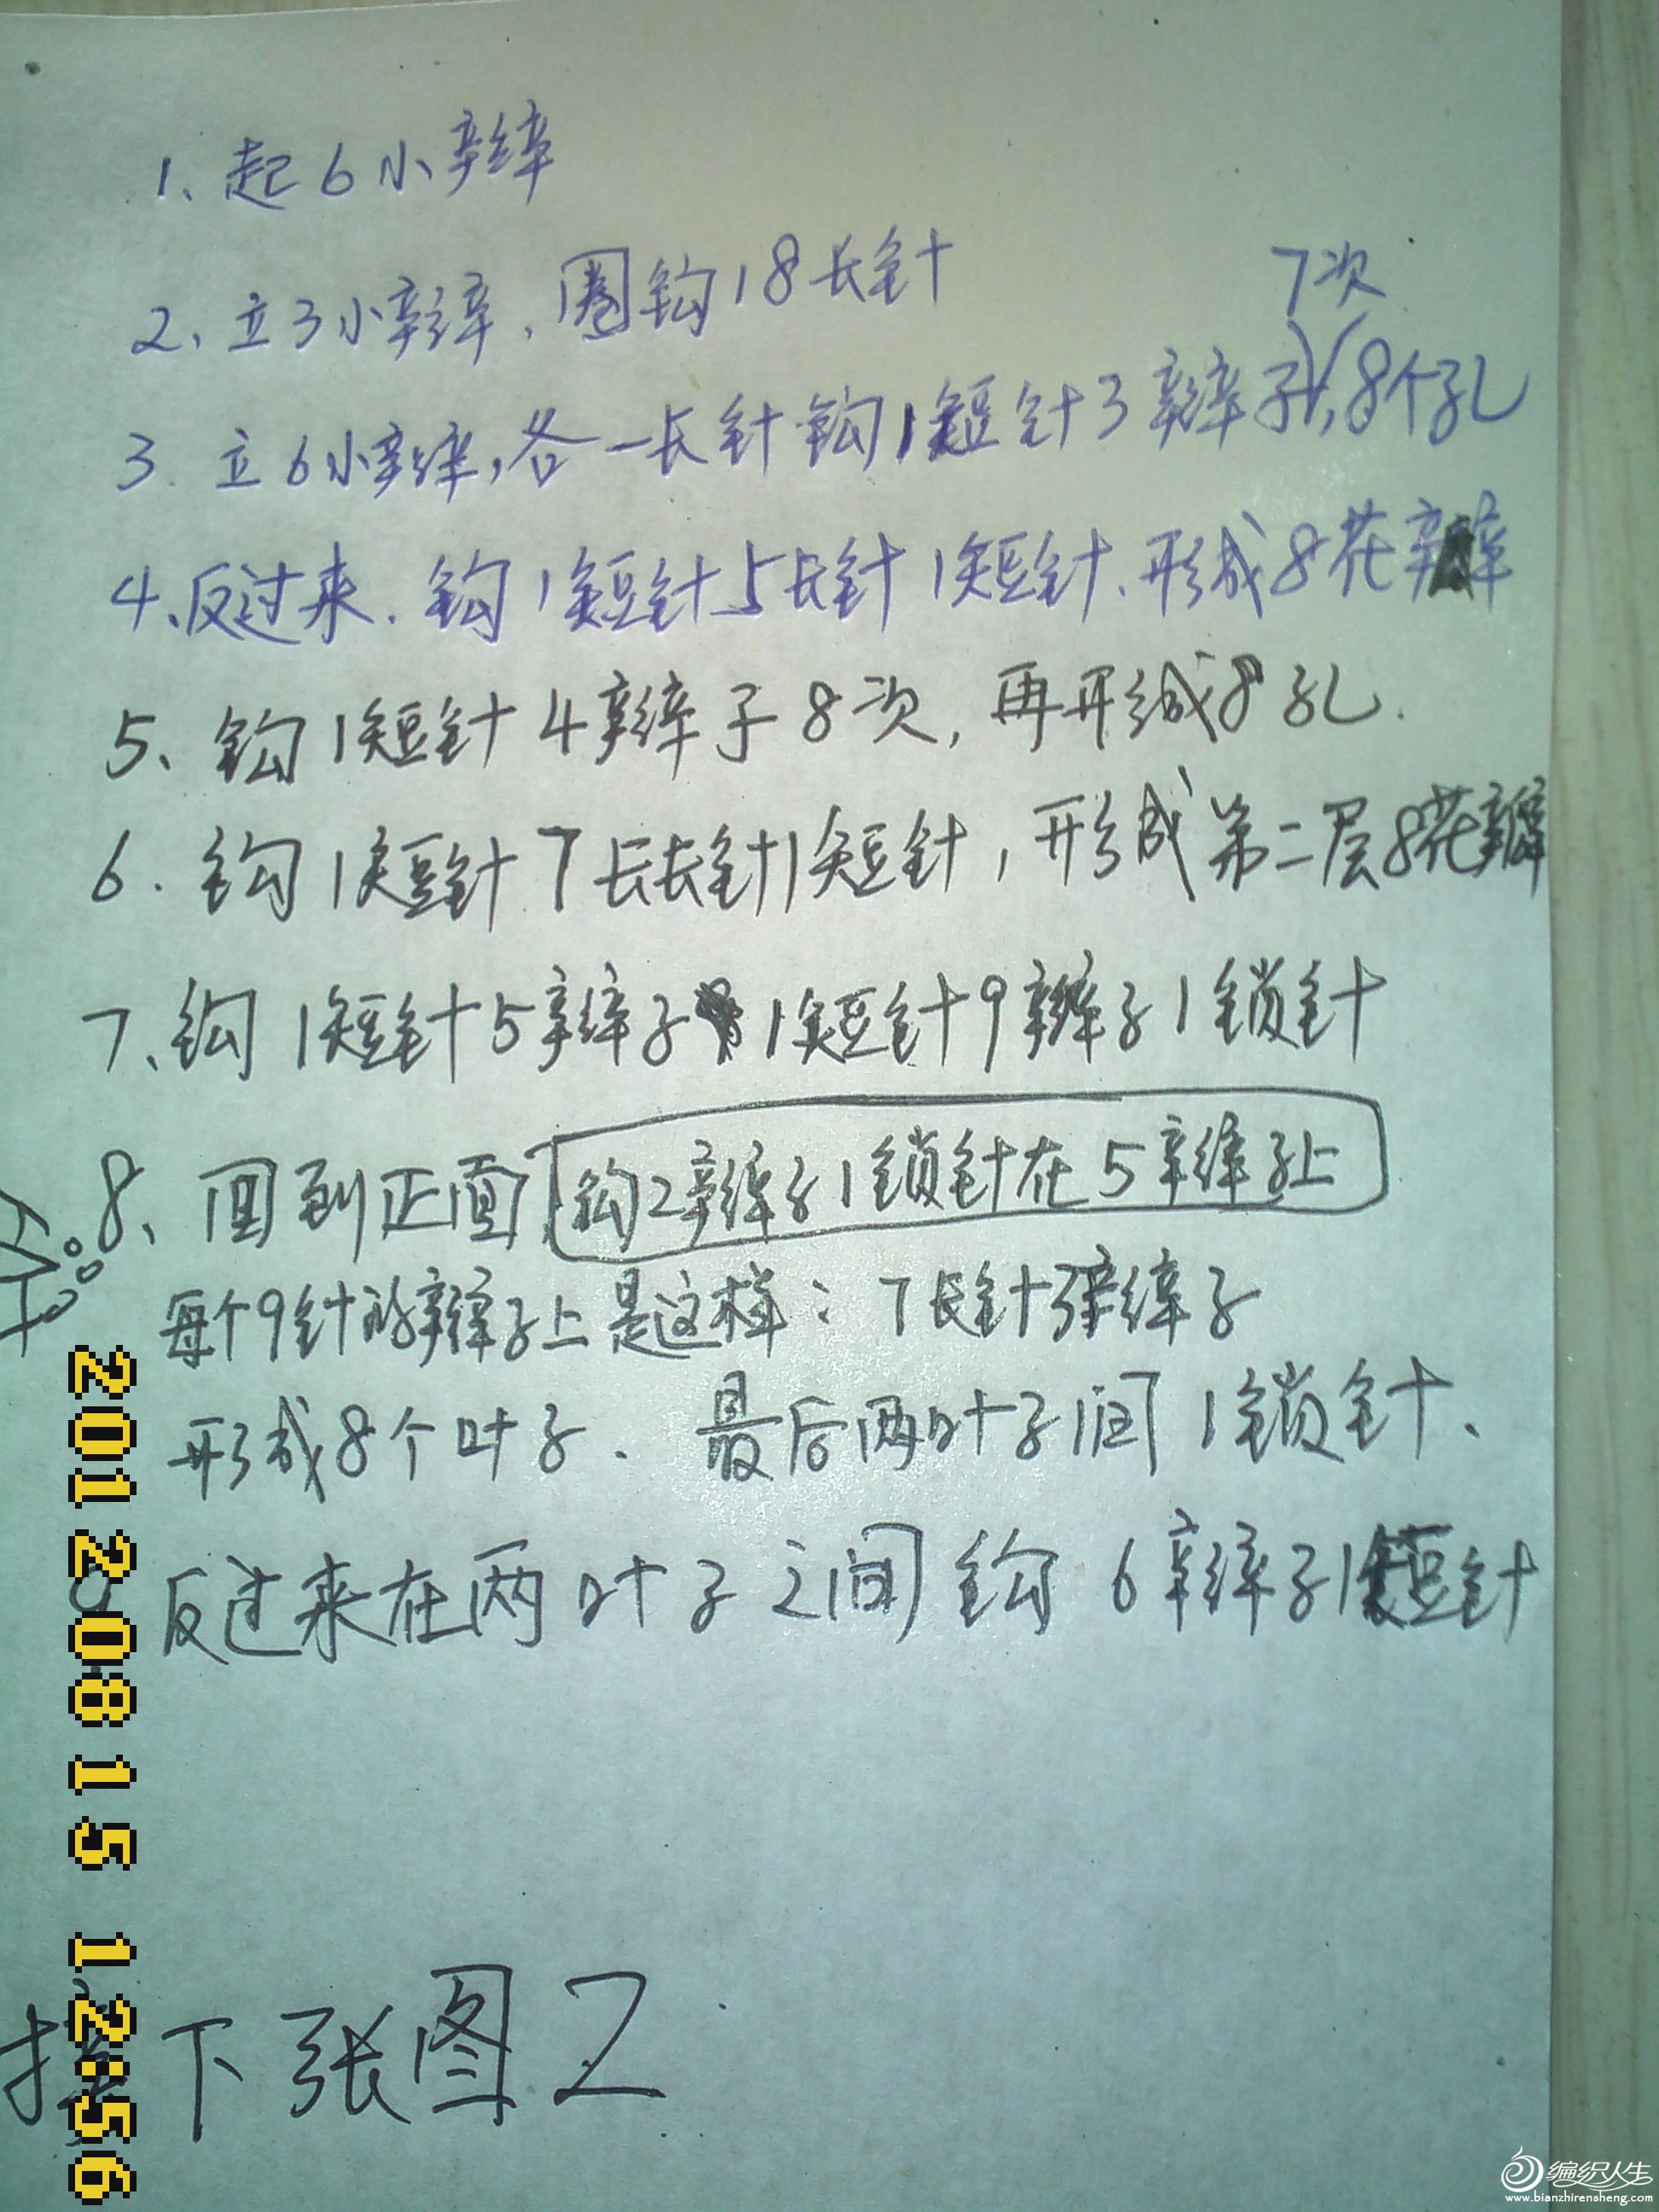 1、起6小辫
2、立3小辫、圈钩18长针
7次
3.立6小辫,各一长针钩1短针3辫子,8个孔
4、反过来.钩1短针5长针1短针、形成8花瓣
5、钩1短针4辫子8次,再形成8孔.
6.钩1短针7长长针1短针,形成第二层8花瓣
7、钩1短针5辫子1短针9辫子1锁针
8、回到正面,钩2辫子1锁针在5辫子上
每个9针的辫子上是这样:7长针3辫子
形成8个叶子.最后两叶子间1锁针、
反过来在两叶子之间钩6辫子1短针
接下张图2
2012 08 15 12:56
编织人生
www.bianzhirensheng.com